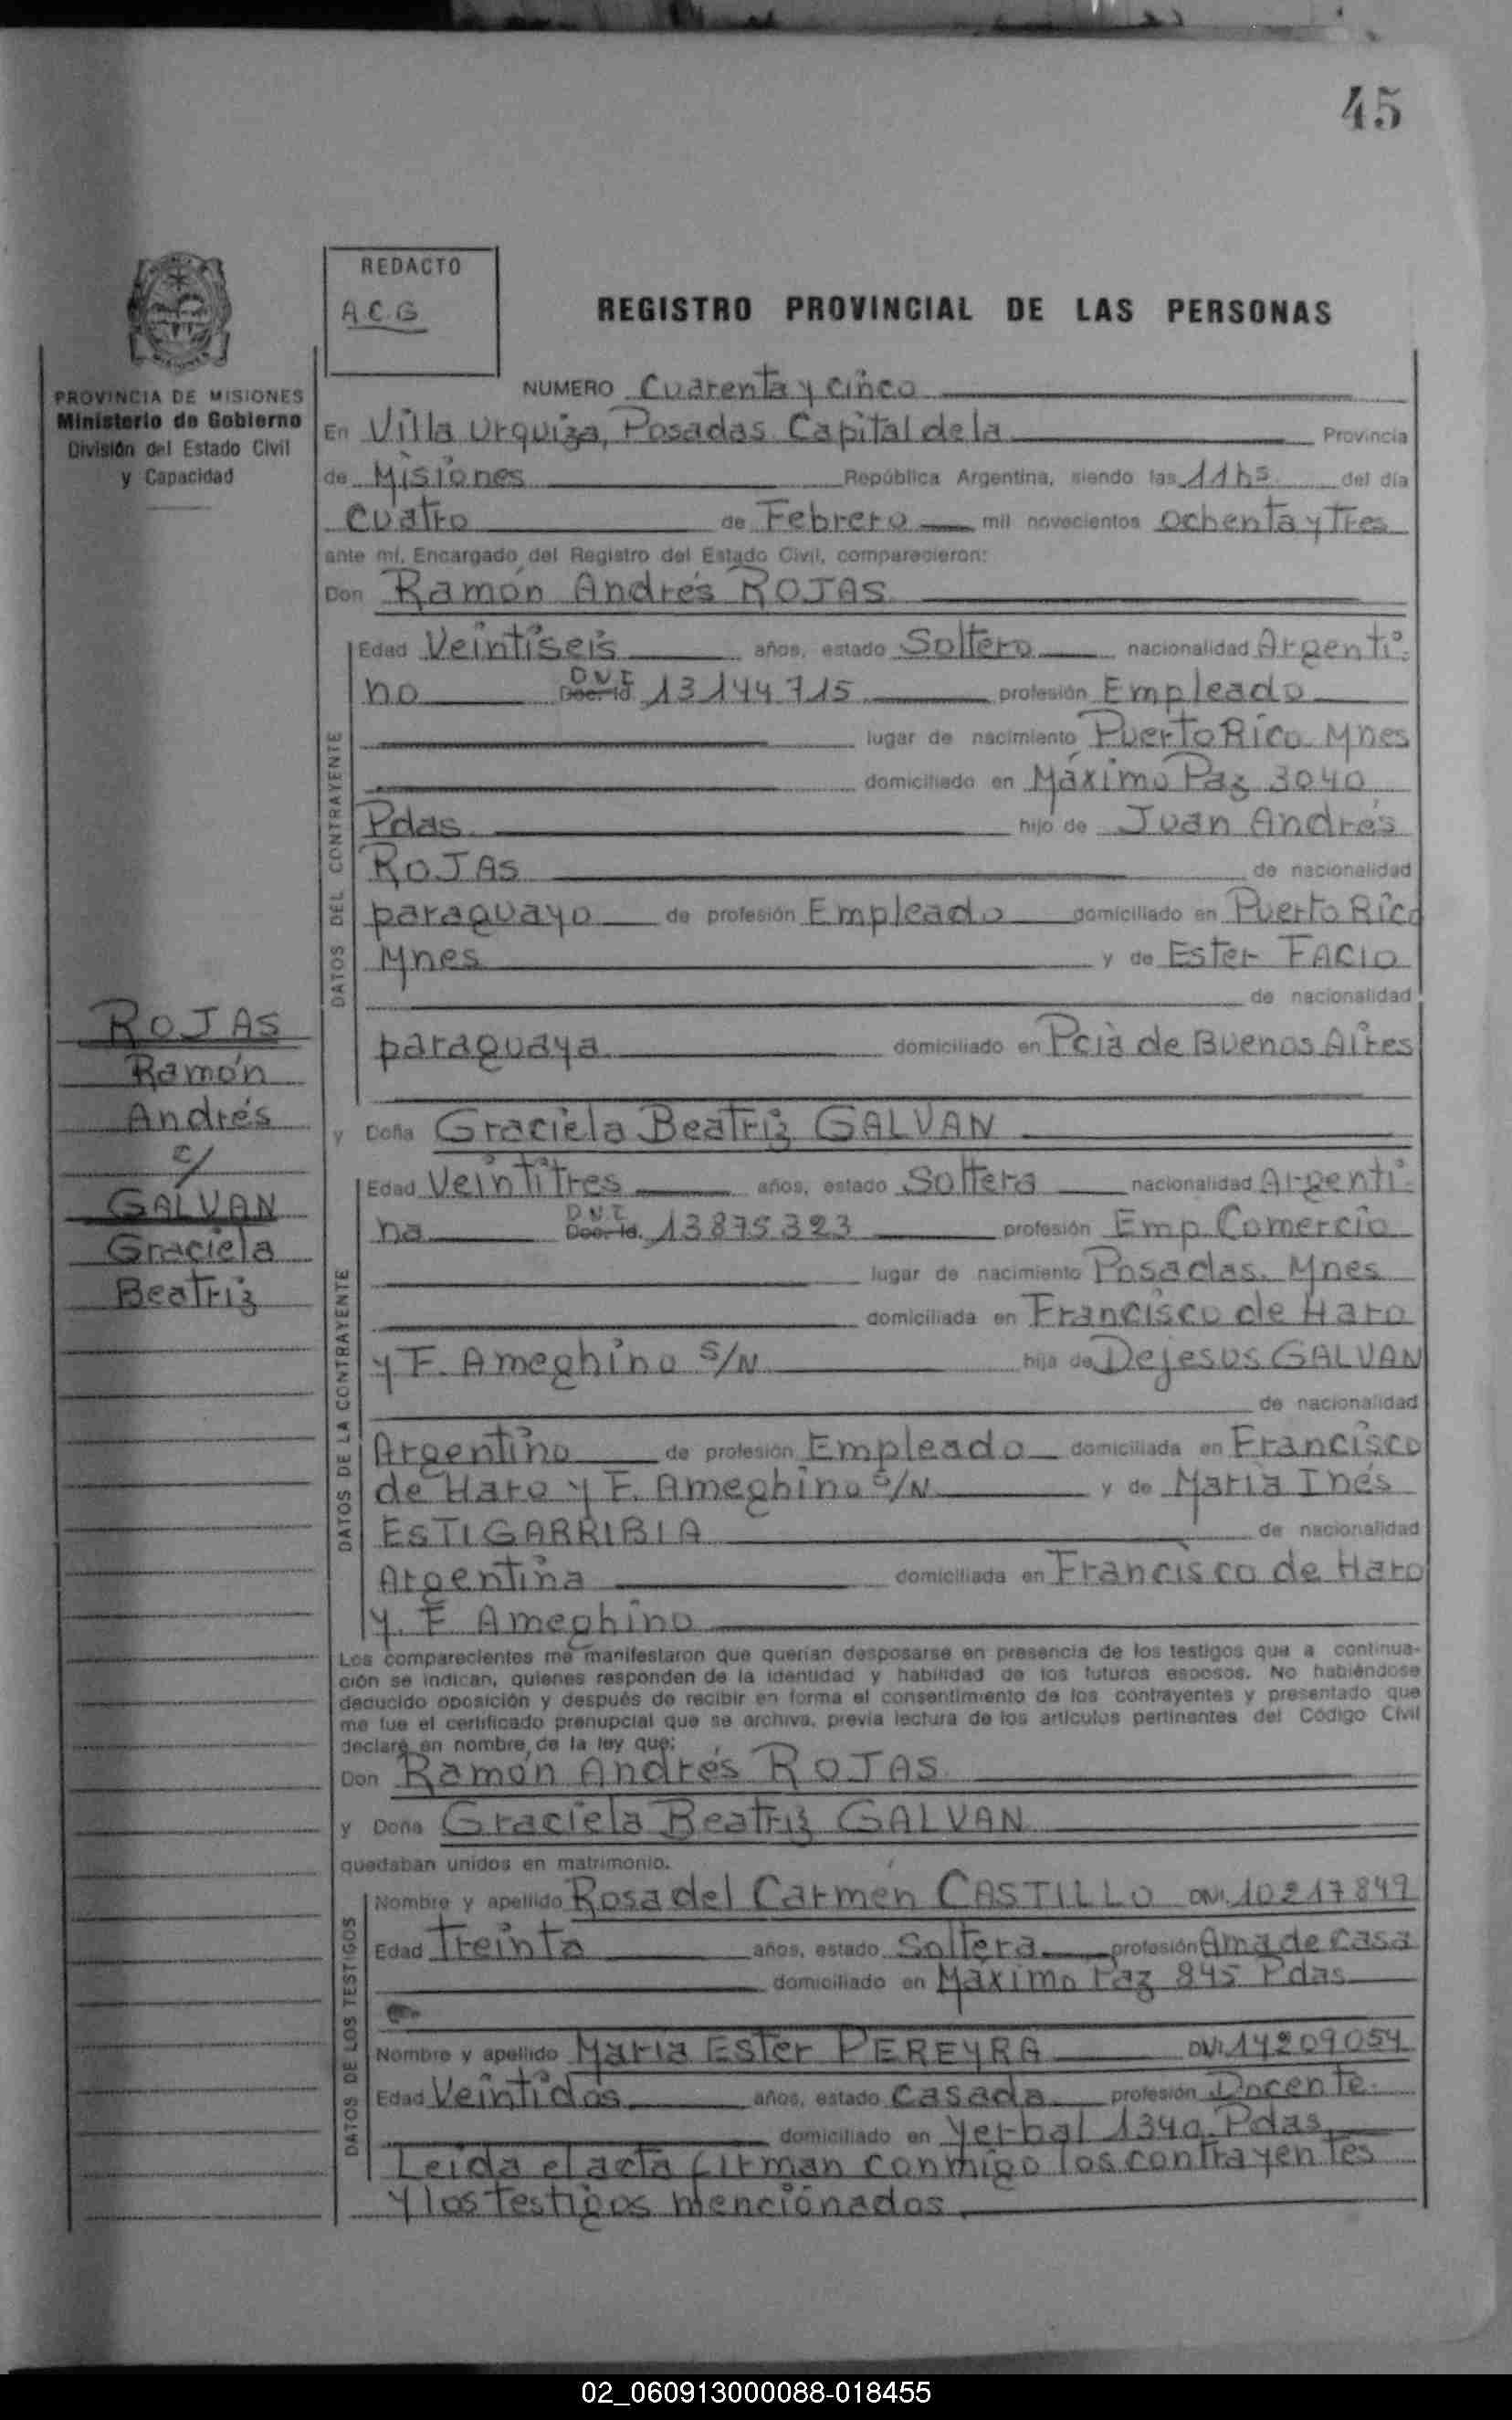 45
REDACTO
A.C.G
REGISTRO PROVINCIAL DE LAS PERSONAS
PROVINCIA DE MISIONES
Ministerio de Gobierno
División del Estado Civil
y Capacidad
NUMERO Cuarenta y cinco
En Villa Urquiza, Posadas Capital de la Provincia
de Misiones República Argentina, siendo las 11 hs del día
Cuatro de Febrero mil novecientos Ochenta y Tres
ante mí, Encargado del Registro del Estado Civil, comparecieron:
Don Ramón Andrés ROJAS
DATOS DEL CONTRAYENTE
Edad Veintiseis años, estado Soltero nacionalidad Argenti-
no D.N.I Doc. Id. 13144715 profesión Empleado
lugar de nacimiento Puerto Rico Mnes
domiciliado en Máximo Paz 3040
Pdas hijo de Juan Andrés
ROJAS de nacionalidad
paraguayo de profesión Empleado domiciliado en Puerto Rico
Mnes y de Ester FACIO
de nacionalidad
paraguaya domiciliado en Pcia de Buenos Aires
ROJAS
Ramón
Andrés
c/
GALVAN
Graciela
Beatriz
y Doña Graciela Beatriz GALVAN
DATOS DE LA CONTRAYENTE
Edad Veintitres años, estado Soltera nacionalidad Argenti-
na D.N.I Doc. Id. 13875323 profesión Emp. Comercio
lugar de nacimiento Posadas. Mnes
domiciliada en Francisco de Haro
y F. Ameghino S/N hija de Dejesus GALVAN
de nacionalidad
Argentino de profesión Empleado domiciliada en Francisco
de Haro y F. Ameghino S/N y de Maria Inés
ESTIGARRIBIA de nacionalidad
Argentina domiciliada en Francisco de Haro
y. F Ameghino
Los comparecientes me manifestaron que querían desposarse en presencia de los testigos que a continua-
ción se indican, quienes responden de la identidad y habilidad de los futuros esposos. No habiéndose
deducido oposición y después de recibir en forma el consentimiento de los contrayentes y presentado que
me fue el certificado prenupcial que se archiva, previa lectura de los artículos pertinentes del Código Civil
declaré en nombre de la ley que:
Don Ramón Andrés ROJAS
y Doña Graciela Beatriz GALVAN
quedaban unidos en matrimonio.
DATOS DE LOS TESTIGOS
Nombre y apellido Rosa del Carmen CASTILLO DNI. 10217849
Edad Treinta años, estado Soltera profesión Ama de casa
domiciliado en Máximo Paz 845 Pdas
Nombre y apellido Maria Ester PEREYRA DNI. 14209054
Edad Veintidos años, estado casada profesión Docente.
domiciliado en Yerbal 1340. Pdas
Leída el acta firman conmigo los contrayentes
y los testigos mencionados
02_060913000088-018455